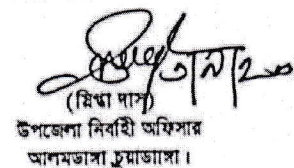 (স্নিগ্ধা দাস)
উপজেলা নির্বাহী অফিসার
আলমডাঙ্গা চুয়াডাঙ্গা।